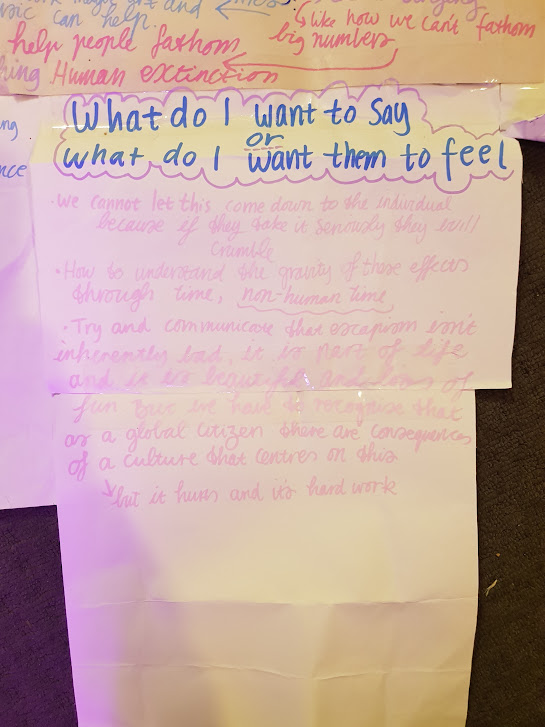 music can help.
like how we can't fathom
big numbers
help people fathom
Human extinction
What do I want to say
or
what do I want them to feel
• we cannot let this come down to the individual
because if they take it seriously they will
crumble
• How to understand the gravity of these effects
through time, non-human time
• Try and communicate that escapism isn't
inherently bad, it is part of life
and it is beautiful and loads of
fun But we have to recognise that
as a global citizen there are consequences
of a culture that centres on this
but it hurts and it's hard work